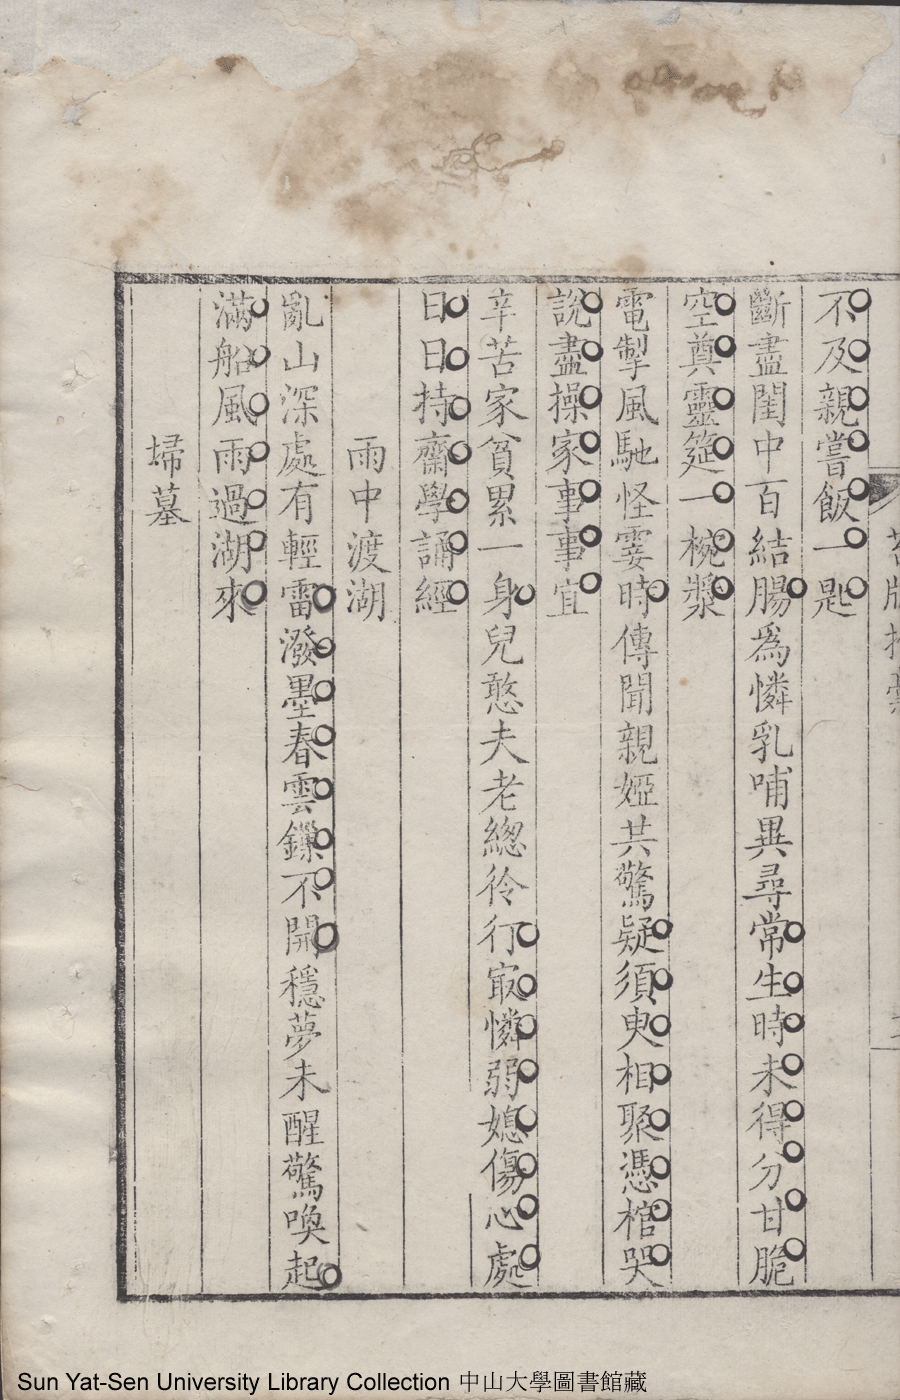 不及親嘗飯一匙
斷盡閨中百結腸爲憐乳哺異尋常生時未得分甘脆
空奠靈筵一椀漿
電掣風馳怪霎時傳聞親婭共驚疑須臾相聚憑棺哭
說盡操家事事宜
辛苦家貧累一身兒憨夫老總伶仃㝡憐弱媳傷心處
日日持齋學誦經
雨中渡湖
亂山深處有輕雷潑墨春雲鏁不開穩夢未醒驚喚起
滿船風雨過湖來
埽墓
Sun Yat-Sen University Library Collection 中山大學圖書館藏